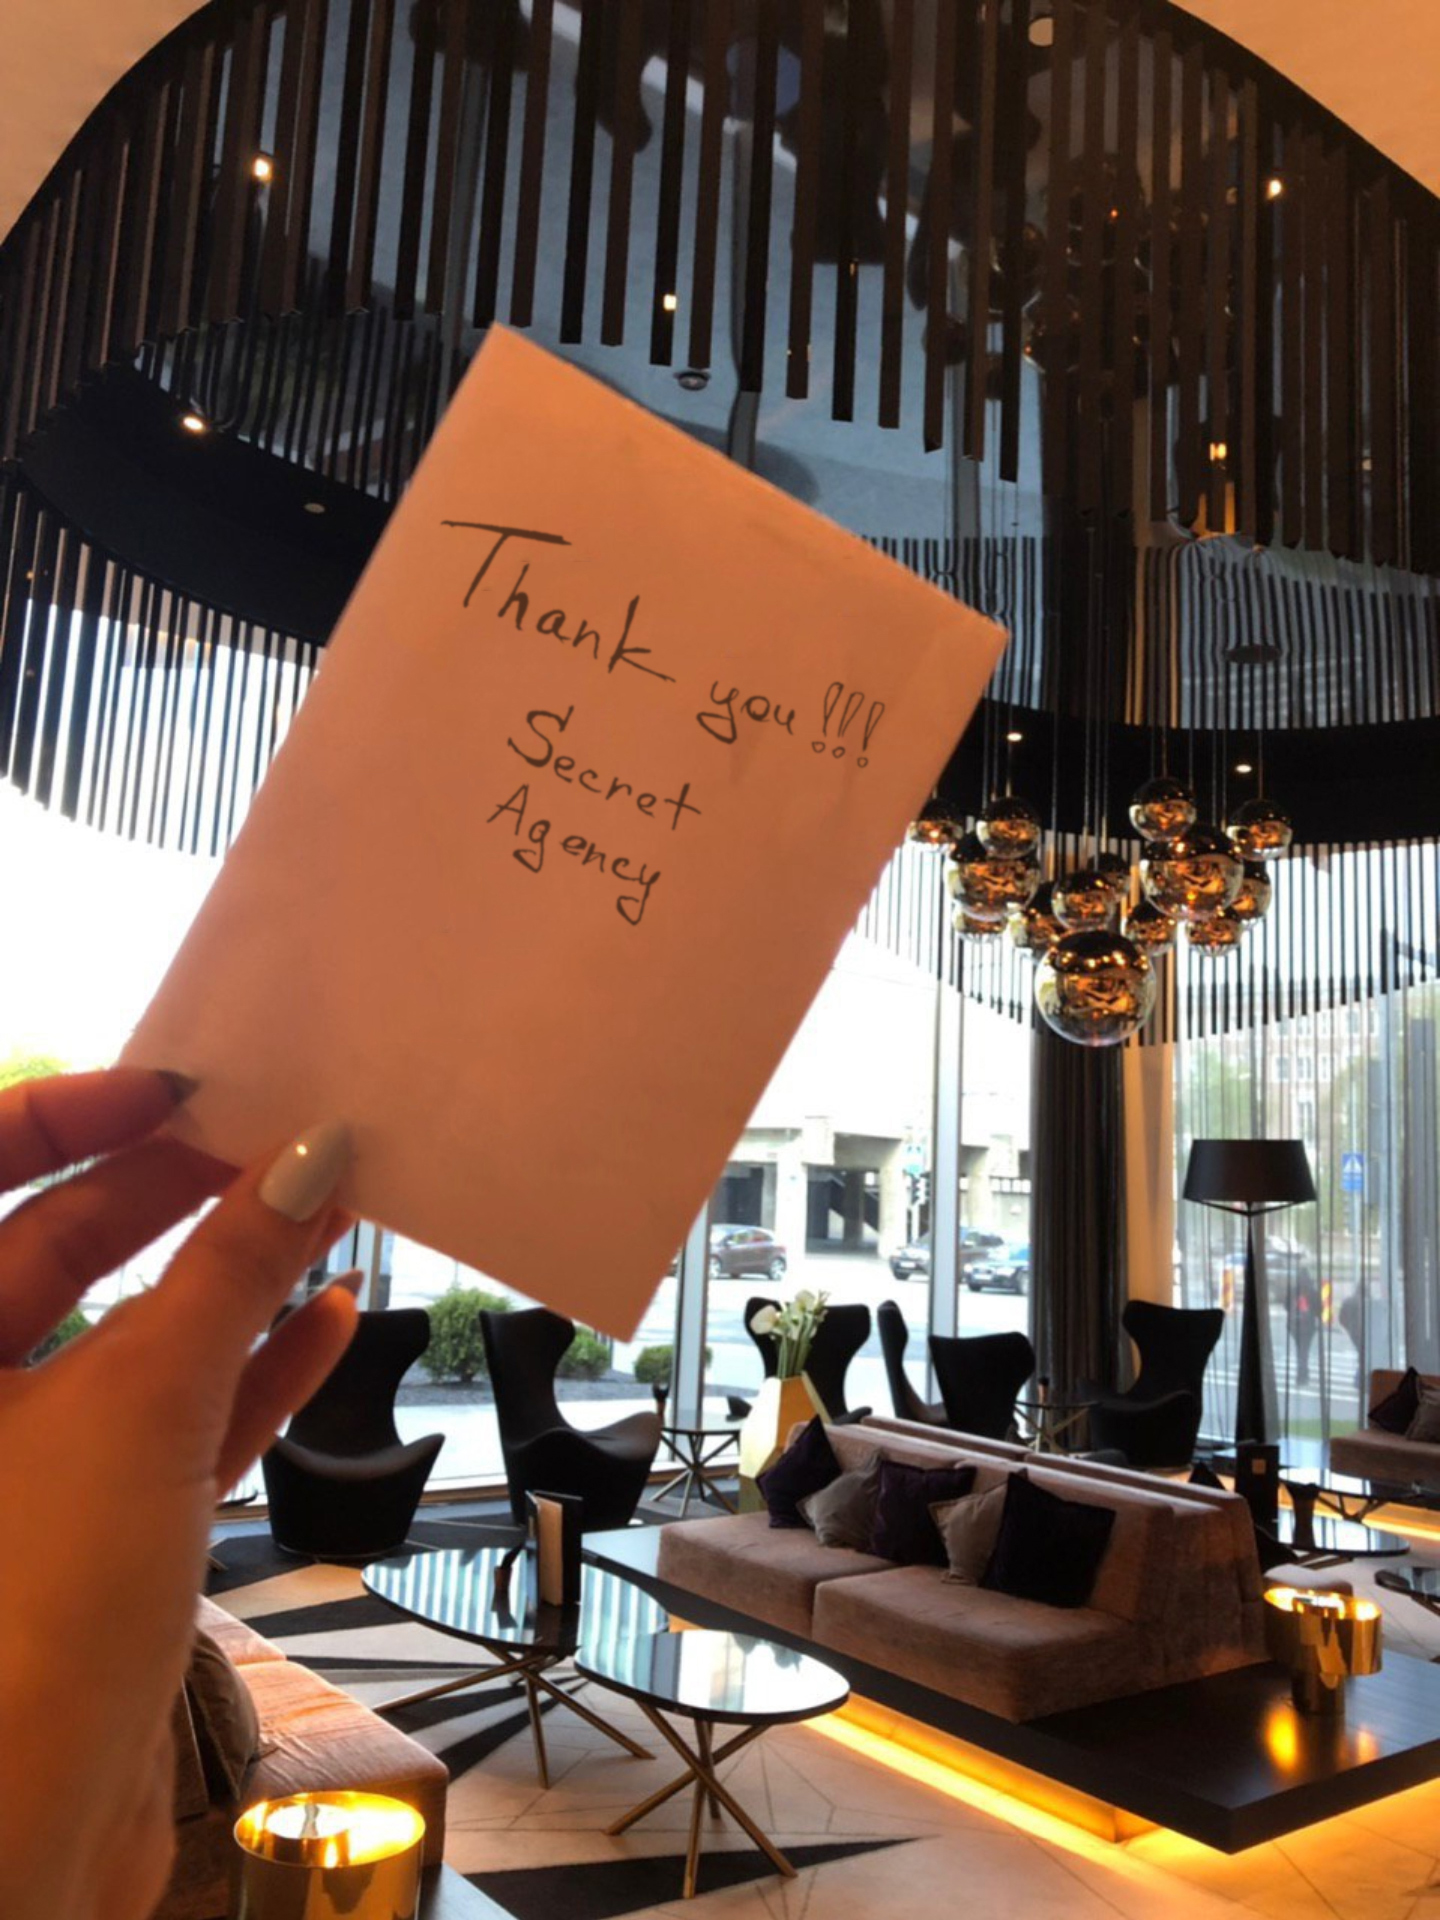 Thank you!!!
Secret
Agency